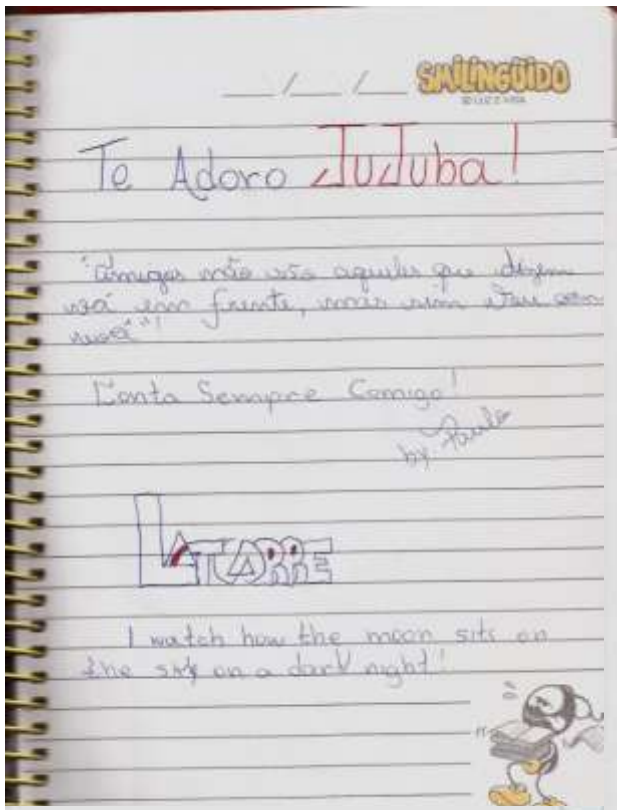 __/__/__ SMILINGÜIDO
Te Adoro JuJuba!
"Amigos não são aqueles que dizem
vá em frente, mais sim
Conta Sempre Comigo!
by: Paulo
LATORRE
I watch how the moon sits on
the sky on a dark night!